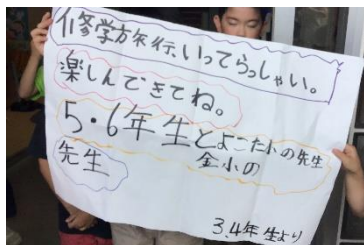 修学旅行、いってらっしゃい。
楽しんできてね。
5・6年生とよこた小の先生
金小の
先生
3.4年生より